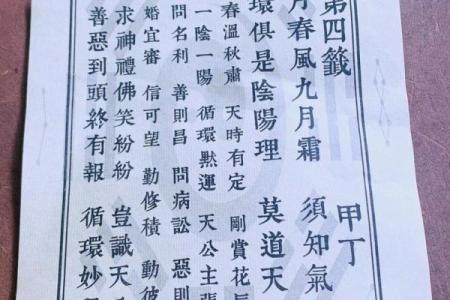 第四籤 甲丁
月春風九月霜 須知氣
環俱是陰陽理 莫道天
春溫秋肅 天時有定 剛賞花辰
一陰一陽 循環默運 天公主
問名利 善則昌 問病訟 惡則
婚宜審 信可望 勤修積 動彼
求神禮佛笑紛紛 豈識天
善惡到頭終有報 循環妙